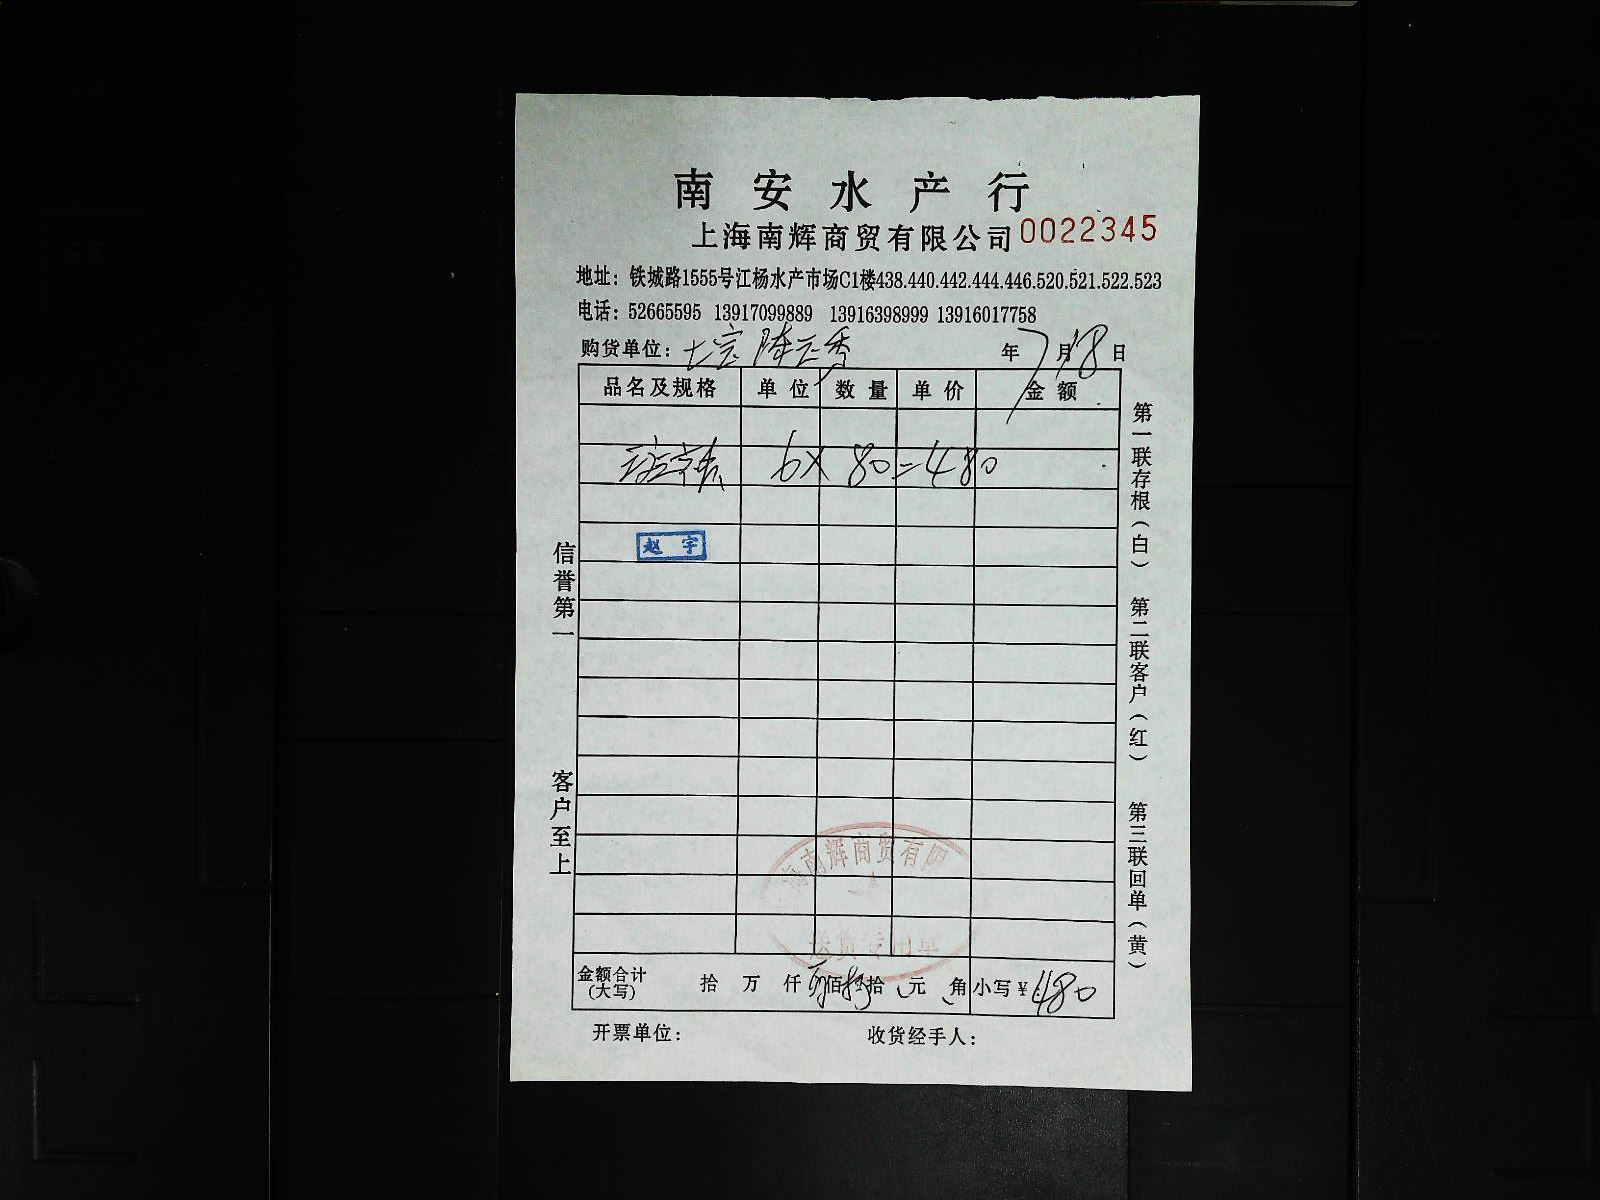 南安水产行
上海南辉商贸有限公司 0022345
地址：铁城路1555号江杨水产市场C1楼438.440.442.444.446.520.521.522.523
电话：52665595 13917099889 13916398999 13916017758
购货单位： 年 7 月 18 日
品名及规格 单位 数量 单价 金额
6 X 80 = 480
赵宇
信誉第一
客户至上
第一联存根（白）
第二联客户（红）
第三联回单（黄）
海南辉商贸有限
送货专用章
金额合计 拾 万 仟 佰 拾 元 角 小写¥ 480
（大写）
开票单位： 收货经手人：